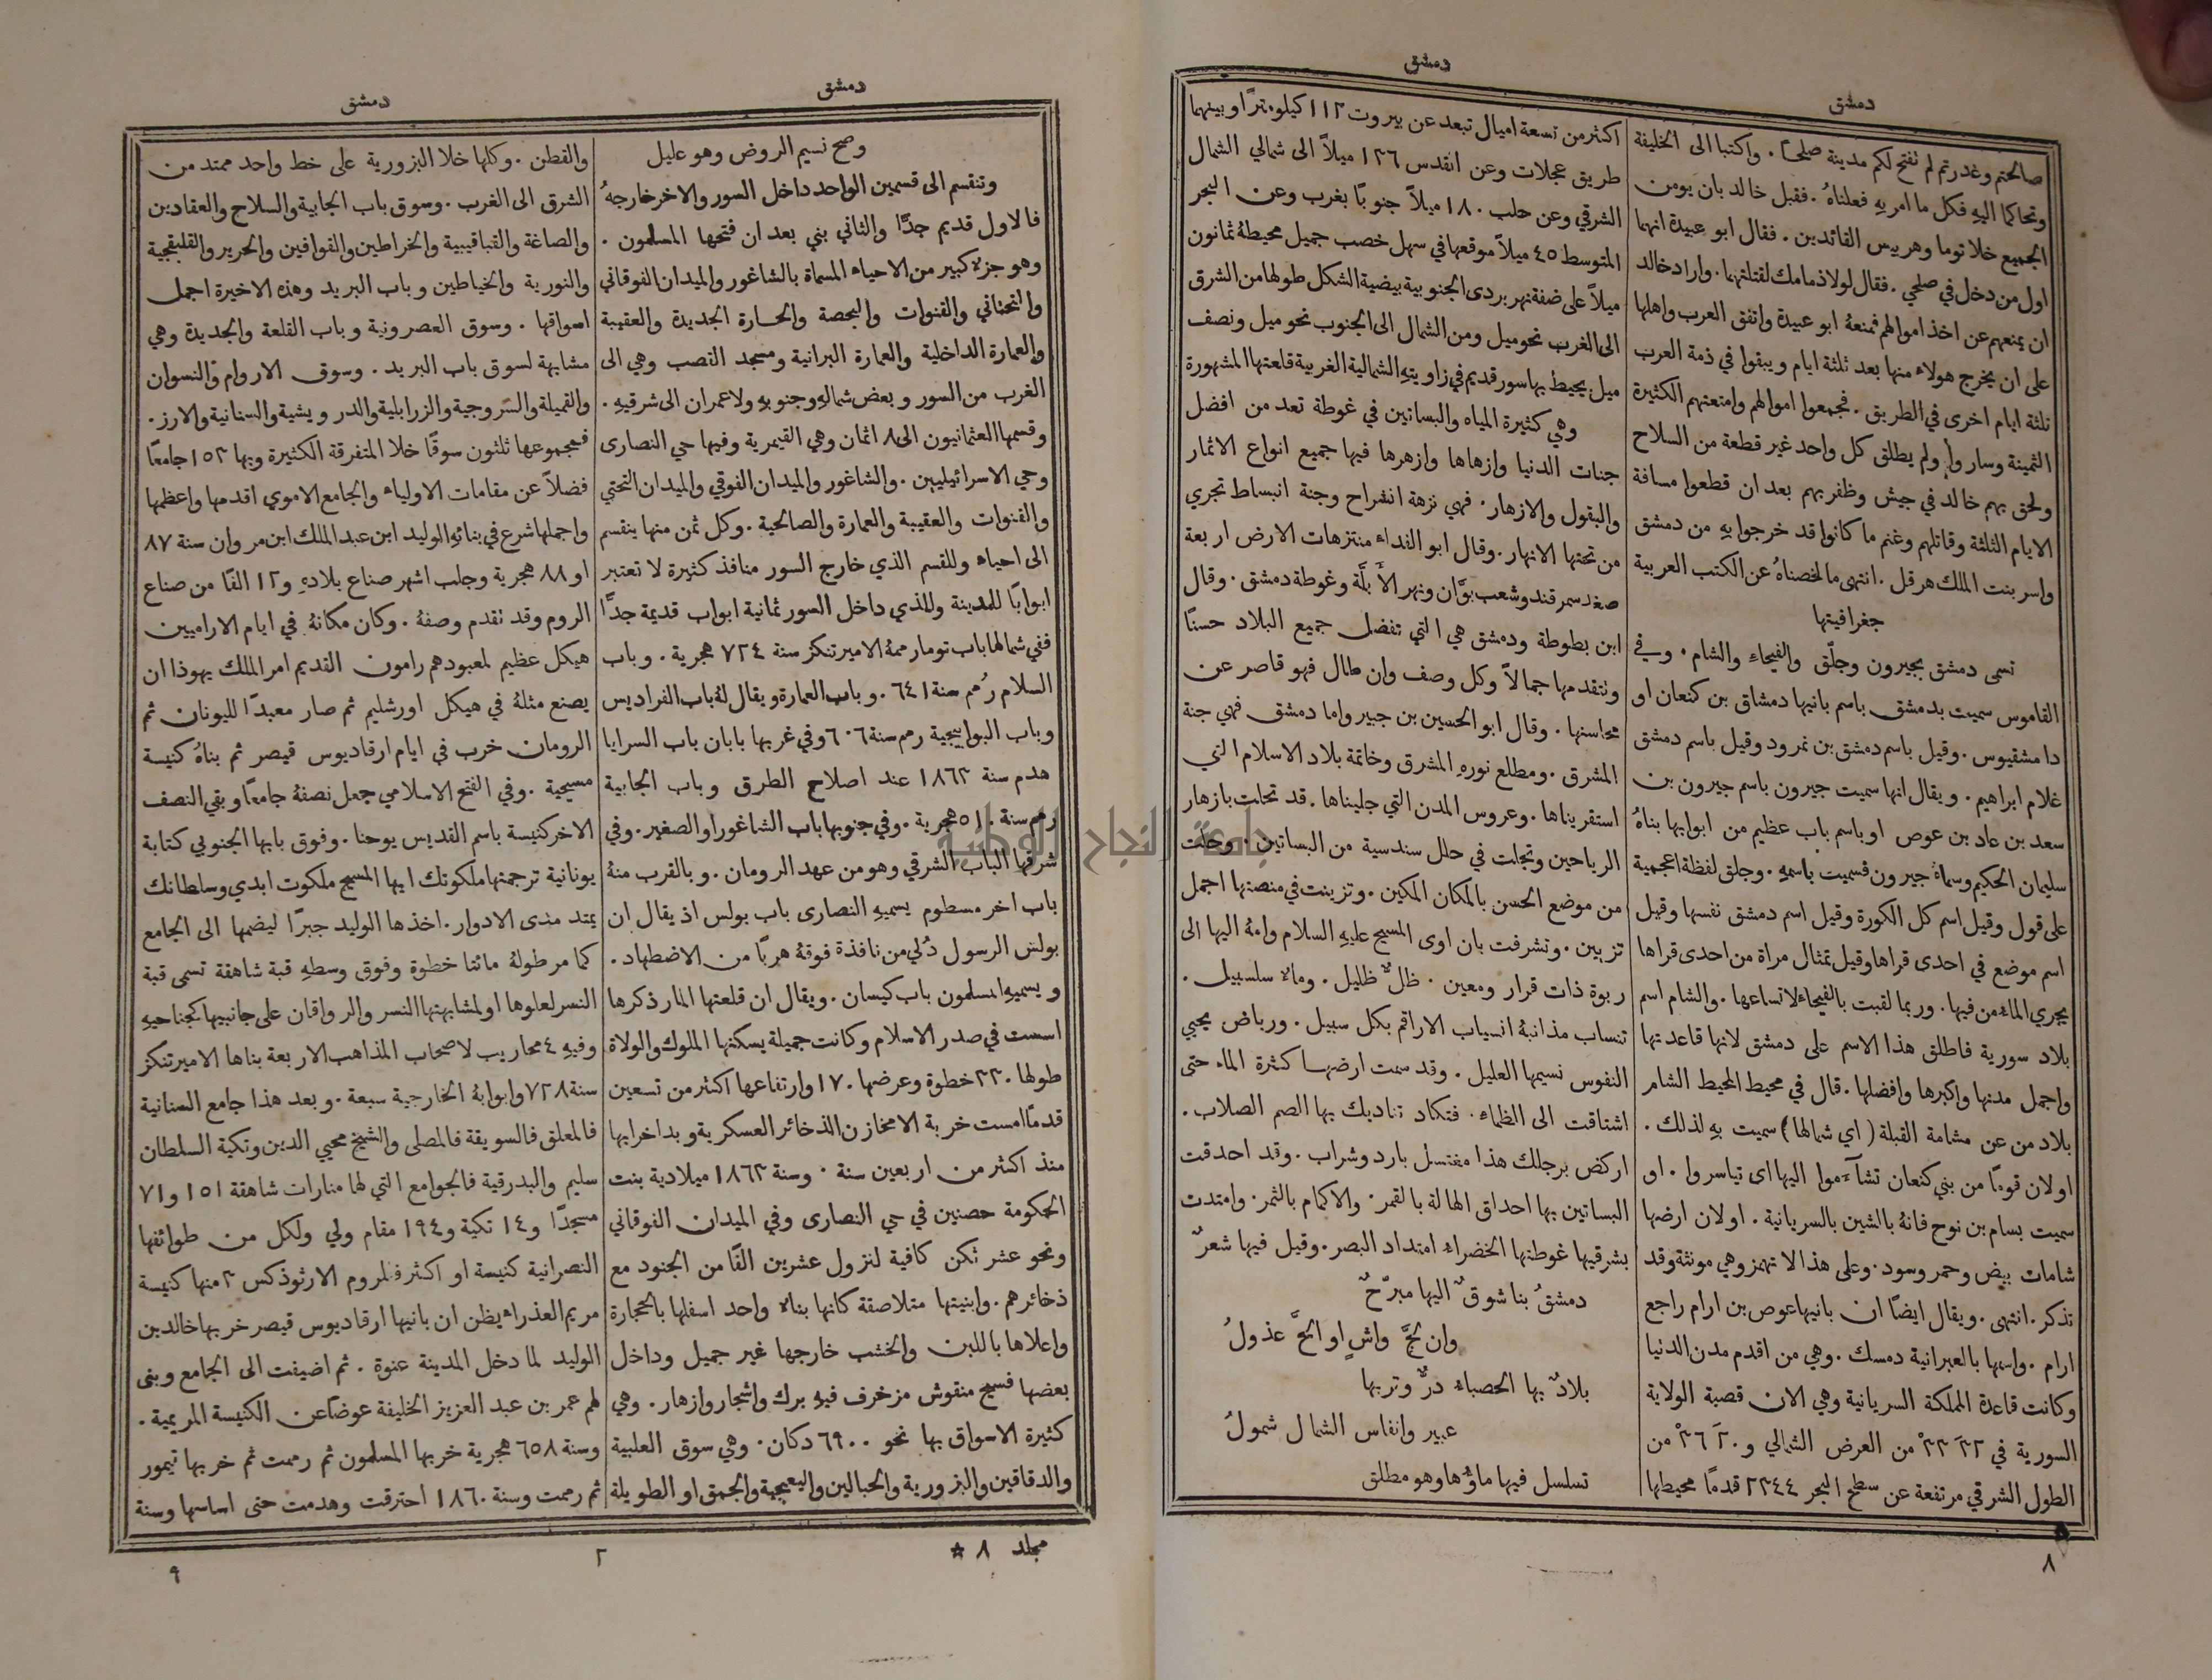 دمشق
دمشق
صالحتم وغدرتم لم تفتح لكم مدينة صلحاً . واكتبا الى الخليفة
وتحاكما اليهِ فكل ما امر بهِ فعلناهُ . فقبل خالد بان يومن
الجميع خلا توما وهربيس القائدين . فقال ابو عبيدة انهما
اول من دخل في صلحي . فقال لولا ذمامك لقتلتهما . واراد خالد
ان يمنعهم عن اخذ اموالهم فمنعهُ ابو عبيدة واتفق العرب واهلها
على ان يخرج هولاء منها بعد ثلثة ايام ويبقوا في ذمة العرب
ثلثة ايام اخرى في الطريق . فجمعوا اموالهم وامتعتهم الكثيرة
الثمينة وساروا ولم يطلق كل واحد غير قطعة من السلاح
ولحق بهم خالد في جيش وظفر بهم بعد ان قطعوا مسافة
الايام الثلثة وقاتلهم وغنم ما كانوا قد خرجوا بهِ من دمشق
واسر بنت الملك هرقل . انتهى ما لخصناهُ عن الكتب العربية
جغرافيتها
تسمى دمشق بجيرون وجلّق والفيحاء والشام . وفي
القاموس سميت بدمشق باسم بانيها دمشاق بن كنعان او
دامشقيوس . وقيل باسم دمشق بن نمرود وقيل باسم دمشق
غلام ابراهيم . ويقال انها سميت جيرون باسم جيرون بن
سعد بن عاد بن عوص او باسم باب عظيم من ابوابها بناهُ
سليمان الحكيم وسماهُ جيرون فسميت باسمهِ . وجلق لفظة اعجمية
على قول وقيل اسم كل الكورة وقيل اسم دمشق نفسها وقيل
اسم موضع في احدى قراها وقيل تمثال مراة من احدى قراها
يجري الماء من فيها . وربما لقبت بالفيحاء لاتساعها . والشام اسم
بلاد سورية فاطلق هذا الاسم على دمشق لانها قاعدتها
واجمل مدنها واكبرها وافضلها . قال في محيط المحيط الشام
بلاد من عن مشامة القبلة ( اي شمالها ) سميت بهِ لذلك .
او لان قومًا من بني كنعان تشآءموا اليها اى تياسروا . او
سميت بسام بن نوح فانهُ بالشين بالسريانية . او لان ارضها
شامات بيض وحمر وسود . وعلى هذا لا تهمز وهي مونثة وقد
تذكر . انتهى . ويقال ايضًا ان بانيها عوص بن ارام راجع
ارام . واسمها بالعبرانية دمسك . وهي من اقدم مدن الدنيا
وكانت قاعدة المملكة السريانية وهي الان قصبة الولاية
السورية في ٣٢َ ٣٣ْ من العرض الشمالي و ٢٠َ ٣٦ْ من
الطول الشرقي مرتفعة عن سطح البحر ٢٣٤٤ قدمًا محيطها
اكثر من تسعة اميال تبعد عن بيروت ١١٢ كيلومترًا وبينهما
طريق عجلات وعن القدس ١٣٦ ميلاً الى شمالي الشمال
الشرقي وعن حلب ١٨٠ ميلاً جنوبًا بغرب وعن البحر
المتوسط ٤٥ ميلاً موقعها في سهل خصب جميل محيطهُ ثمانون
ميلاً على ضفة نهر بردى الجنوبية بيضية الشكل طولها من الشرق
الى الغرب نحو ميل ومن الشمال الى الجنوب نحو ميل ونصف
ميل يحيط بها سور قديم في زاويتهِ الشمالية الغربية قلعتها المشهورة
وهي كثيرة المياه والبساتين في غوطة تعد من افضل
جنات الدنيا وازهاها وازهرها فيها جميع انواع الاثمار
والبقول والازهار . فهي نزهة انشراح وجنة انبساط تجري
من تحتها الانهار . وقال ابو الفداء منتزهات الارض اربعة
صغد سمرقند وشعب بوَّان ونهر الأُبلَّة وغوطة دمشق . وقال
ابن بطوطة ودمشق هي التي تفضل جميع البلاد حسنًا
وتتقدمها جمالاً وكل وصف وان طال فهو قاصر عن
محاسنها . وقال ابو الحسين بن جبير واما دمشق فهي جنة
المشرق . ومطلع نورهِ المشرق وخاتمة بلاد الاسلام التي
استقريناها . وعروس المدن التي جليناها . قد تحلت بازهار
الرياحين وتجلت في حلل سندسية من البساتين . وحلت
من موضع الحسن بالمكان المكين . وتزينت في منصتها اجمل
تزيين . وتشرفت بان اوى المسيح عليهِ السلام وامهُ اليها الى
ربوة ذات قرار ومعين . ظلٌّ ظليل . وماء سلسبيل .
تنساب مذانبهُ انسياب الاراقم بكل سبيل . ورياض يحيي
النفوس نسيمها العليل . وقد سمت ارضها كثرة الماء حتى
اشتاقت الى الظماء . فتكاد تناديك بها الصم الصلاب .
اركض برجلك هذا مغتسل بارد وشراب . وقد احدقت
البساتين بها احداق الهالة بالقمر . والاكمام بالثمر . وامتدت
بشرقيها غوطتها الخضراء امتداد البصر . وقيل فيها شعرٌ
دمشقُ بنا شوقٌ اليها مبرّحٌ
وان لجَّ واشٍ او الحَّ عذولُ
بلادٌ بها الحصباء درٌّ وتربها
عبير وانفاس الشمال شمولُ
تسلسل فيها ماؤُها وهو مطلق
٨
دمشق
دمشق
وصح نسيم الروض وهو عليل
وتنقسم الى قسمين الواحد داخل السور والاخر خارجهُ
فالاول قديم جدًّا والثاني بني بعد ان فتحها المسلمون .
وهو جزء كبير من الاحياء المسماة بالشاغور والميدان الفوقاني
والتحتاني والقنوات والبحصة والحارة الجديدة والعقيبة
والعمارة الداخلية والعمارة البرانية ومسجد القصب وهي الى
الغرب من السور وبعض شمالهِ وجنوبهِ ولا عمران الى شرقيهِ .
وقسمها العثمانيون الى ٨ اثمان وهي القيمرية وفيها حي النصارى
وحي الاسرائيليين . والشاغور والميدان الفوقي والميدان التحتي
والقنوات والعقيبة والعمارة والصالحية . وكل ثمن منها ينقسم
الى احياء وللقسم الذي خارج السور منافذ كثيرة لا تعتبر
ابوابًا للمدينة وللذي داخل السور ثمانية ابواب قديمة جدًّا
ففي شمالها باب توما رممهُ الامير تنكز سنة ٧٣٤ هجرية . وباب
السلام رُمم سنة ٦٤١ . وباب العمارة ويقال لهُ باب الفراديس
وباب البوابيجية رمم سنة ٦٠٦ وفي غربها بابان باب السرايا
هدم سنة ١٨٦٣ عند اصلاح الطرق وباب الجابية
رمم سنة ٥١٠ هجرية . وفي جنوبها باب الشاغور او الصغير . وفي
شرقها الباب الشرقي وهو من عهد الرومان . وبالقرب منهُ
باب اخر مسطوم يسميهِ النصارى باب بولس اذ يقال ان
بولس الرسول دُلي من نافذة فوقهُ هربًا من الاضطهاد .
ويسميهِ المسلمون باب كيسان . ويقال ان قلعتها المار ذكرها
اسست في صدر الاسلام وكانت جميلة يسكنها الملوك والولاة
طولها ٣٣٠ خطوة وعرضها ١٧٠ وارتفاعها اكثر من تسعين
قدمًا امست خربة الا مخازن الذخائر العسكرية وبدا خرابها
منذ اكثر من اربعين سنة . وسنة ١٨٦٣ ميلادية بنت
الحكومة حصنين في حي النصارى وفي الميدان الفوقاني
ونحو عشر ثكن كافية لنزول عشرين الفًا من الجنود مع
ذخائرهم . وابنيتها متلاصقة كانها بناء واحد اسفلها بالحجارة
واعلاها باللبن والخشب خارجها غير جميل وداخل
بعضها فسيح منقوش مزخرف فيهِ برك واشجار وازهار . وهي
كثيرة الاسواق بها نحو ٦٩٠٠ دكان . وهي سوق العلبية
والدقاقين والبزورية والحبالين واليعمجية والجمق او الطويلة
والقطن . وكلها خلا البزورية على خط واحد ممتد من
الشرق الى الغرب . وسوق باب الجابية والسلاح والعقادين
والصاغة والقباقيبية والخراطين والقوافين والحرير والقلبقجية
والنورية والخياطين وباب البريد وهذه الاخيرة اجمل
اسواقها . وسوق العصرونية وباب القلعة والجديدة وهي
مشابهة لسوق باب البريد . وسوق الاروام والنسوان
والقميلة والسروجية والزرابلية والدرويشية والسنانية والارز .
فمجموعها ثلثون سوقًا خلا المتفرقة الكثيرة وبها ١٥٣ جامعًا
فضلاً عن مقامات الاولياء والجامع الاموي اقدمها واعظمها
واجملها شرع في بنائهِ الوليد ابن عبد الملك ابن مروان سنة ٨٧
او ٨٨ هجرية وجلب اشهر صناع بلادهِ و١٢ الفًا من صناع
الروم وقد تقدم وصفهُ . وكان مكانهُ في ايام الاراميين
هيكل عظيم لمعبودهم رامون القديم امر الملك يهوذا ان
يصنع مثلهُ في هيكل اورشليم ثم صار معبدًا لليونان ثم
الرومان خرب في ايام ارقاديوس قيصر ثم بناهُ كنيسة
مسيحية . وفي الفتح الاسلامي جعل نصفهُ جامعًا وبقي النصف
الاخر كنيسة باسم القديس يوحنا . وفوق بابها الجنوبي كتابة
يونانية ترجمتها ملكوتك ايها المسيح ملكوت ابدي وسلطانك
يمتد مدى الادوار . اخذها الوليد جبرًا ليضمها الى الجامع
كما مر طولهُ مائتا خطوة وفوق وسطهِ قبة شاهقة تسمى قبة
النسر لعلوها او لمشابهتها النسر والرواقان على جانبيها كجناحيهِ
وفيهِ ٤ محاريب لاصحاب المذاهب الاربعة بناها الامير تنكز
سنة ٧٢٨ وابوابهُ الخارجية سبعة . وبعد هذا جامع السنانية
فالمعلق فالسويقة فالمصلى والشيخ محيي الدين وتكية السلطان
سليم والبدرقية فالجوامع التي لها منارات شاهقة ١٥١ و٧١
مسجدًا و١٤ تكية و١٩٤ مقام ولي ولكل من طوائفها
النصرانية كنيسة او اكثر فللروم الارثوذكس ٢ منها كنيسة
مريم العذراء يظن ان بانيها ارقاديوس قيصر خربها خالد بن
الوليد لما دخل المدينة عنوة . ثم اضيفت الى الجامع وبنى
لهم عمر بن عبد العزيز الخليفة عوضًا عن الكنيسة المريمية .
وسنة ٦٥٨ هجرية خربها المسلمون ثم رممت ثم خربها تيمور
ثم رممت وسنة ١٨٦٠ احترقت وهدمت حتى اساسها وسنة
مجلد ٨ *
٢
٩
جامعة النجاح الوطنية